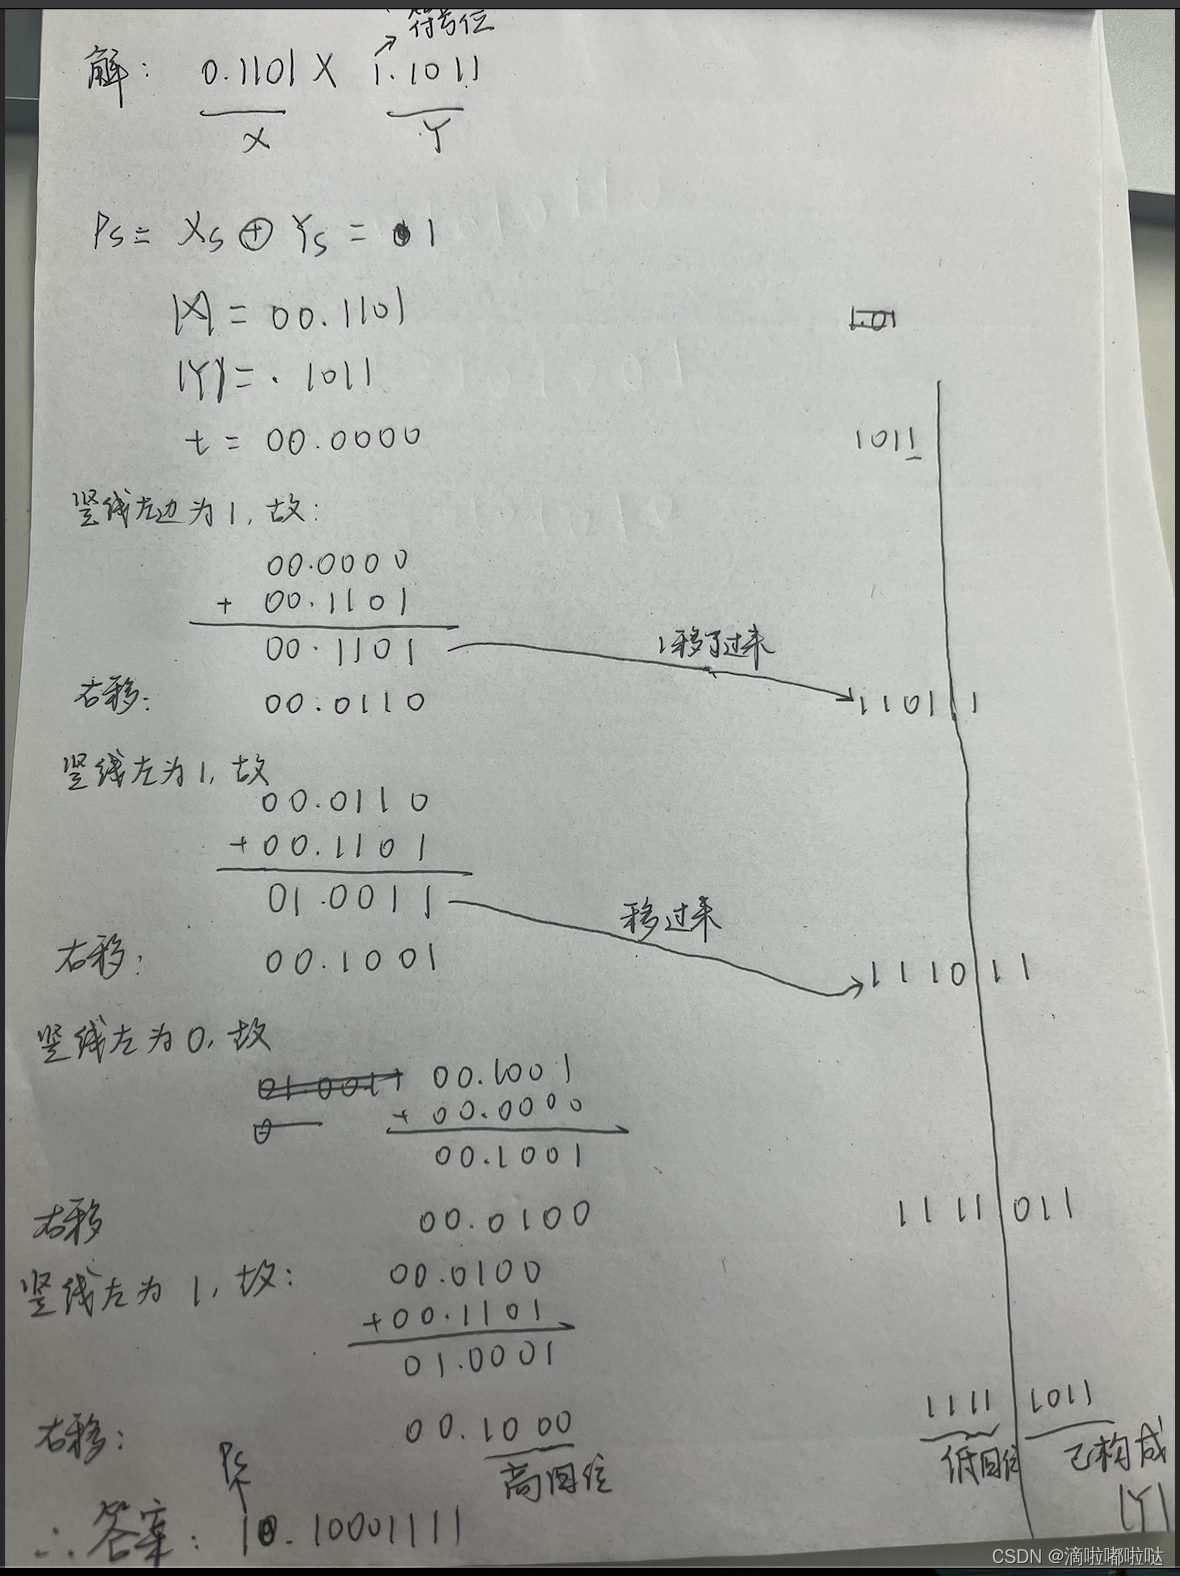 符号位
解: 0.1101 X 1.1011
X Y
Ps = Xs ⊕ Ys = 1
|X| = 00.1101
|Y| = .1011
t = 00.0000 1011
竖线左边为1, 故:
00.0000
+ 00.1101
00.1101 1移了过来
右移: 00.0110 1101 1
竖线左为1, 故
00.0110
+00.1101
01.0011 移过来
右移: 00.1001 1110 11
竖线左为0, 故
00.1001
+ 00.0000
00.1001
右移 00.0100 1111 011
竖线左为 1, 故:
00.0100
+00.1101
01.0001
右移: 00.1000 1111 1011
高四位 低四位 已构成
|Y|
Ps
∴答案: 1.10001111
CSDN @滴啦嘟啦哒